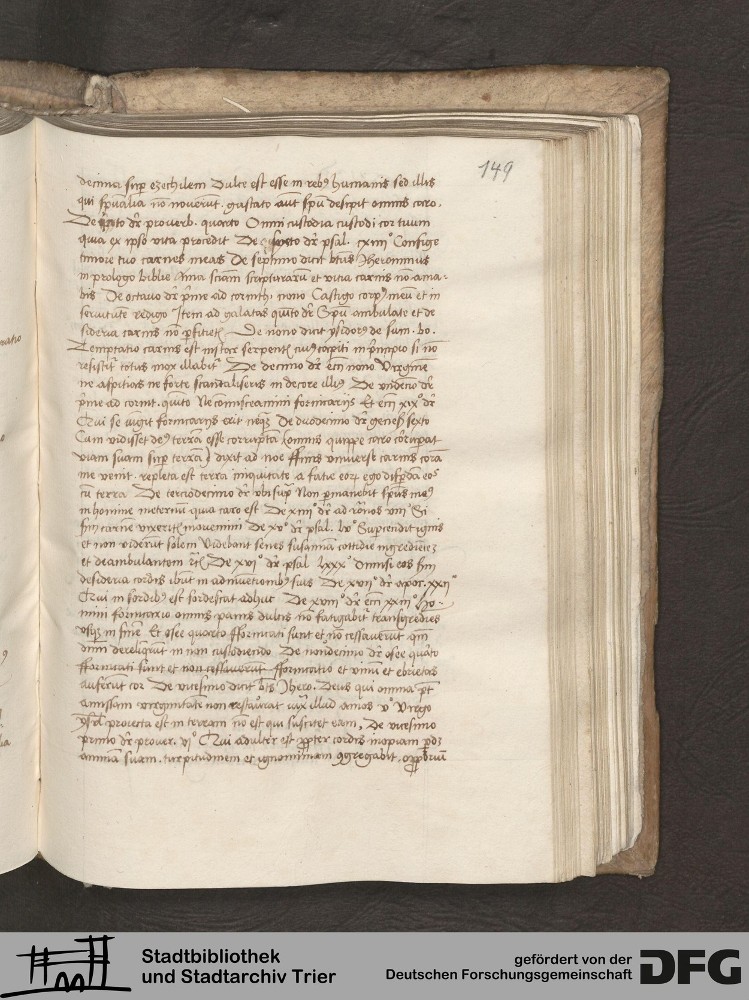 149
decima sup ezechielem Dulce est esse in rebꝰ humanis sed illis
qui spūalia nō noverūt. gustato aūt spū desipit omnis caro.
De qūto dr̄ proverb. quarto Omni custodia custodi cor tuum
quia ex ipso vita procedit De sexto dr̄ psal. cxviii° Confige
timore tuo carnes meas De septimo dicit btūs Jheronimus
in prologo biblie Ama sciam scripturarū et vitia carnis nō ama-
bis De octavo dr̄ prime ad corinth. nono Castigo corpꝰ meū et in
servitutē redigo Item ad galatas quīto dr̄ Spū ambulate et de
sideria carnis nō pficietꝭ De nono dicit ysidorꝰ de sum. bo.
Temptatio carnis est instar serpentꝭ cuiꝰ capiti in principio si nō
resistitᷣ totus mox illabitᷣ De decimo dr̄ ecci nono Virginē
ne aspicias ne forte scandaliseris in decore illiꝰ De undecio dr̄
prime ad corint. quīto Ne cōmisceamini fornicarijs Et ecci xix° dr̄
Qui se iūgit fornicarijs erit neqꝫ De duodecimo dr̄ geneſꝭ sexto
Cum vidisset deꝰ terrā esse corruptā (omnis quippe caro corruperat
viam suam sup terrā) dixit ad noe ffinis universe carnis corā
me venit. repleta est terra iniquitate a facie eoꝝ ego disperdā eos
cū terra De terciodecimo dr̄ ubi sup Non pmanebit spūs meꝰ
in homine ineternū quia caro est De xiiii° dr̄ ad rōnos viii° Si
scdm carnē vixeritꝭ moriemini De xv° dr̄ psal. lv° Supcecidit ignis
et non viderūt solem Videbant senes susannā cottidie ingredientē
et deambulantem ꝛc̄ De xvi° dr̄ psal lxxx° Dimisi eos scdm
desideria cordis ibūt in adinvētionibꝰ suis De xvii° dr̄ apoc. xxii°
Qui in sordibꝰ est sordescat adhuc De xviii° dr̄ ecci xxiii° Ho-
mini fornicario omnis panis dulcis nō fatigabitᷣ transgrediēs
usqꝫ in finē Et osee quarto fformicati sunt et nō cessaverūt qm̄
dnm̄ dereliqrūt in non custodiendo De nonodecimo dr̄ osee quarto
fformicati sunt et non cessaverūt fformicatio et vinū et ebrietas
auferūt cor De vicesimo dicit btūs Jhero. Deus qui omnia pt̄
amissam virginitatē non restaurat iux illud amos v° Virgo
ysrl̄ proiecta est in terram nō est qui suscitet eam, De vicesimo
primo dr̄ prover. vi° Qui adulter est ꝓpter cordis inopiam pdꝫ
animā suam. turpitudinem et ignominiam ꝯgregabit. opprobriū
Stadtbibliothek
und Stadtarchiv Trier
gefördert von der
Deutschen Forschungsgemeinschaft
DFG